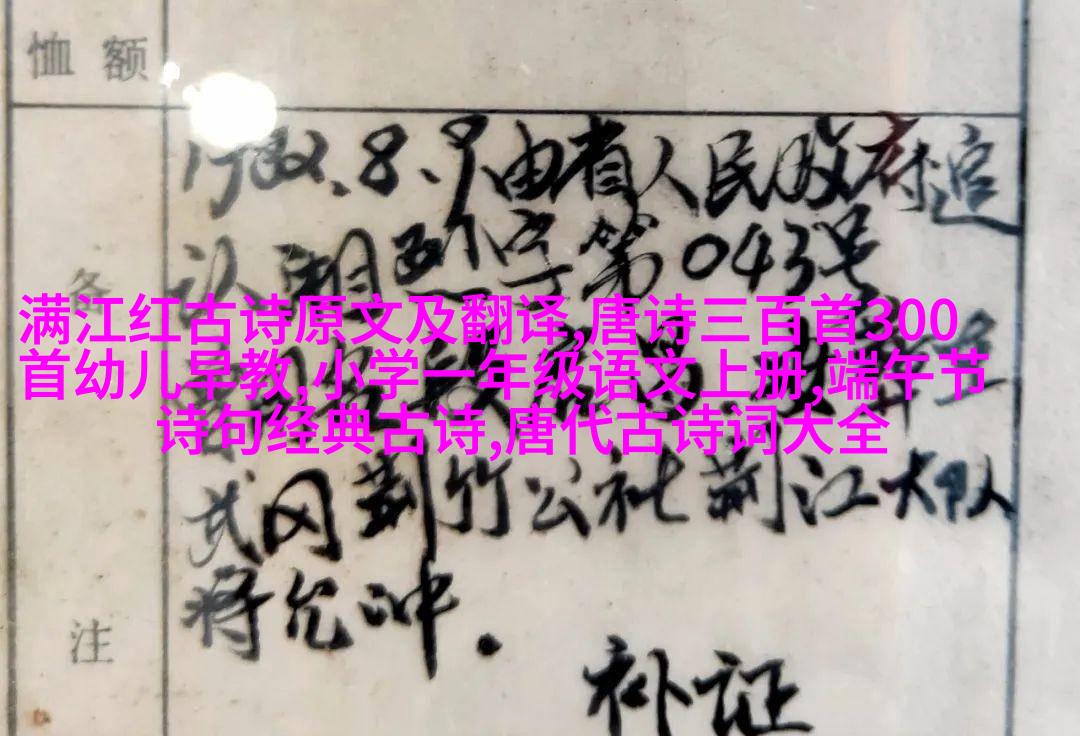 恤额
1982.8.9由省人民政府追
认湘烈字第043号
备
满江红古诗原文及翻译,唐诗三百首300
首幼儿早教,小学一年级语文上册,端午节
诗句经典古诗,唐代古诗词大全
武冈荆竹公社荆江大队
蒋允冲.
注
补证